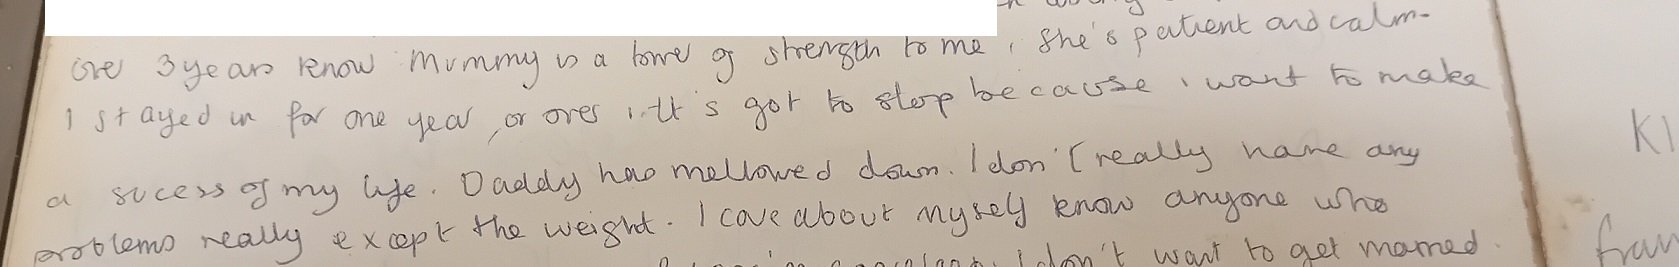 over 3 years know Mummy is a tower of strength to me, She's patient and calm.
I stayed in for one year, or over, it's got to stop because i want to make
a sucess of my life. Daddy has mellowed down. I don't really have any
problems really except the weight. I care about myself know anyone who
I don't want to get married.
KI